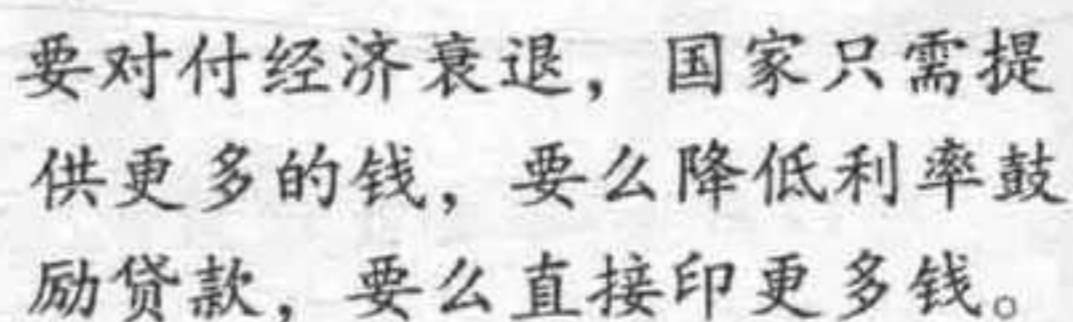 要对付经济衰退，国家只需提
供更多的钱，要么降低利率鼓
励贷款，要么直接印更多钱。